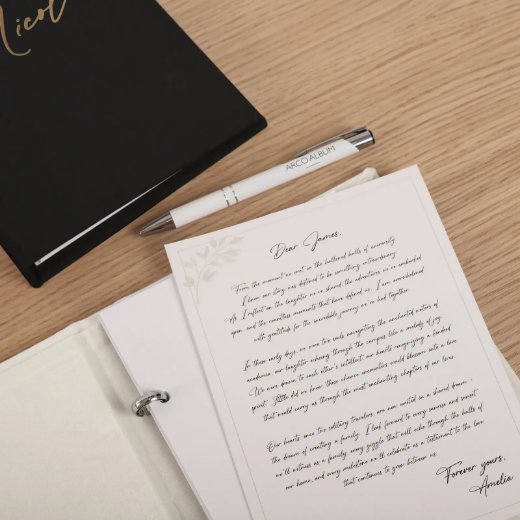 Nicol
ARCO ALBUM
Dear James,
From the moment we met in the hallowed halls of university,
I knew our story was destined to be something extraordinary.
As I reflect on the laughter we've shared, the adventures we've embarked
upon, and the countless moments that have defined us, I am overwhelmed
with gratitude for the incredible journey we've had together.
In those early days, we were two souls navigating the enchanted waters of
academia, our laughter echoing through the campus like a melody of joy.
We were drawn to each other's intellect, our hearts recognizing a kindred
spirit. Little did we know, those chance encounters would blossom into a love
that would carry us through the most enchanting chapters of our lives.
Our hearts once two solitary travelers, are now united in a shared dream -
the dream of creating a family. I look forward to every sunrise and sunset
we'll witness as a family, every giggle that will echo through the halls of
our home, and every milestone we'll celebrate as a testament to the love
that continues to grow between us.
Forever yours,
Amelia